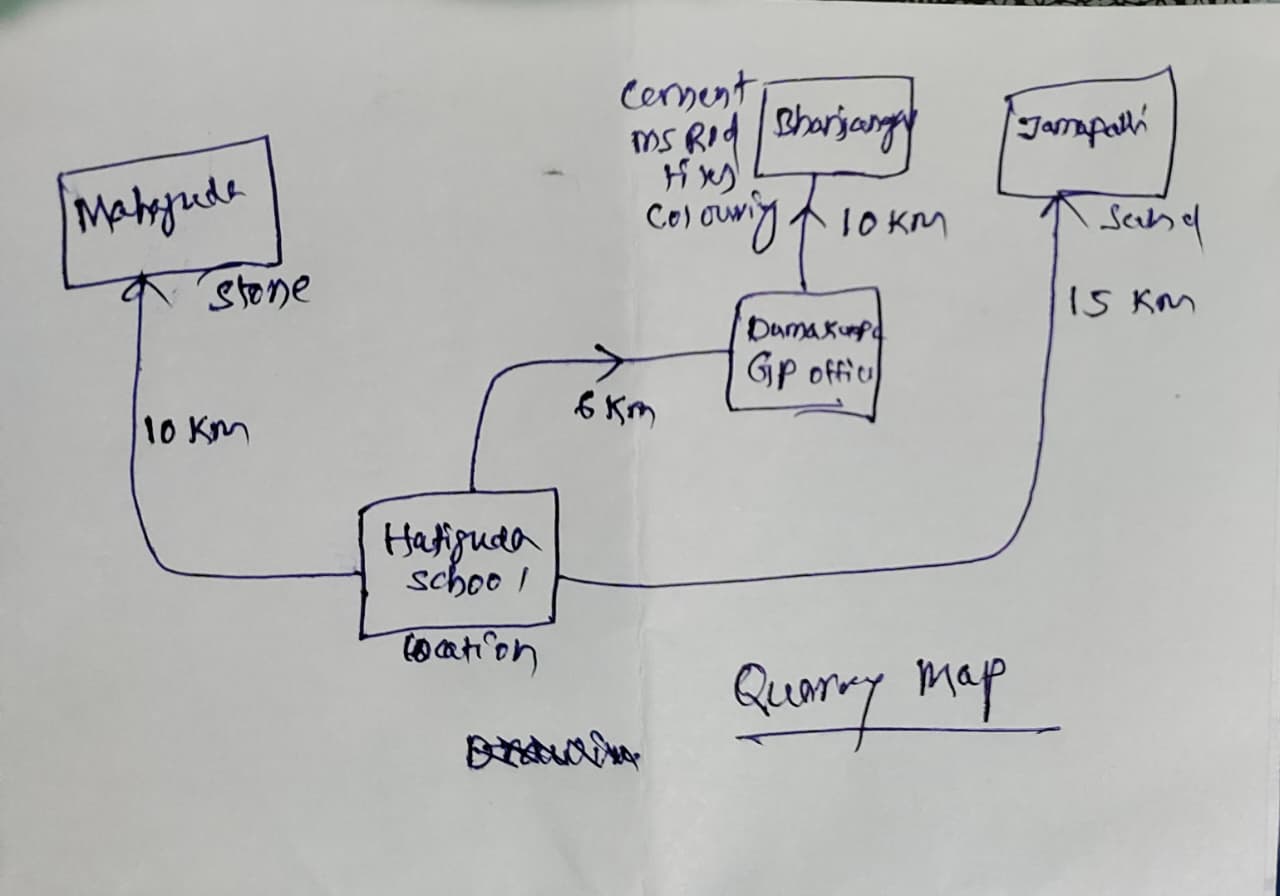 Cement
MS Rod
Colouring
Bhanjangr
Jamapalli
Mahaguda
Stone
10 KM
Sand
15 KM
GP office
6 KM
10 KM
Hatiguda
School
Location
Quarry Map